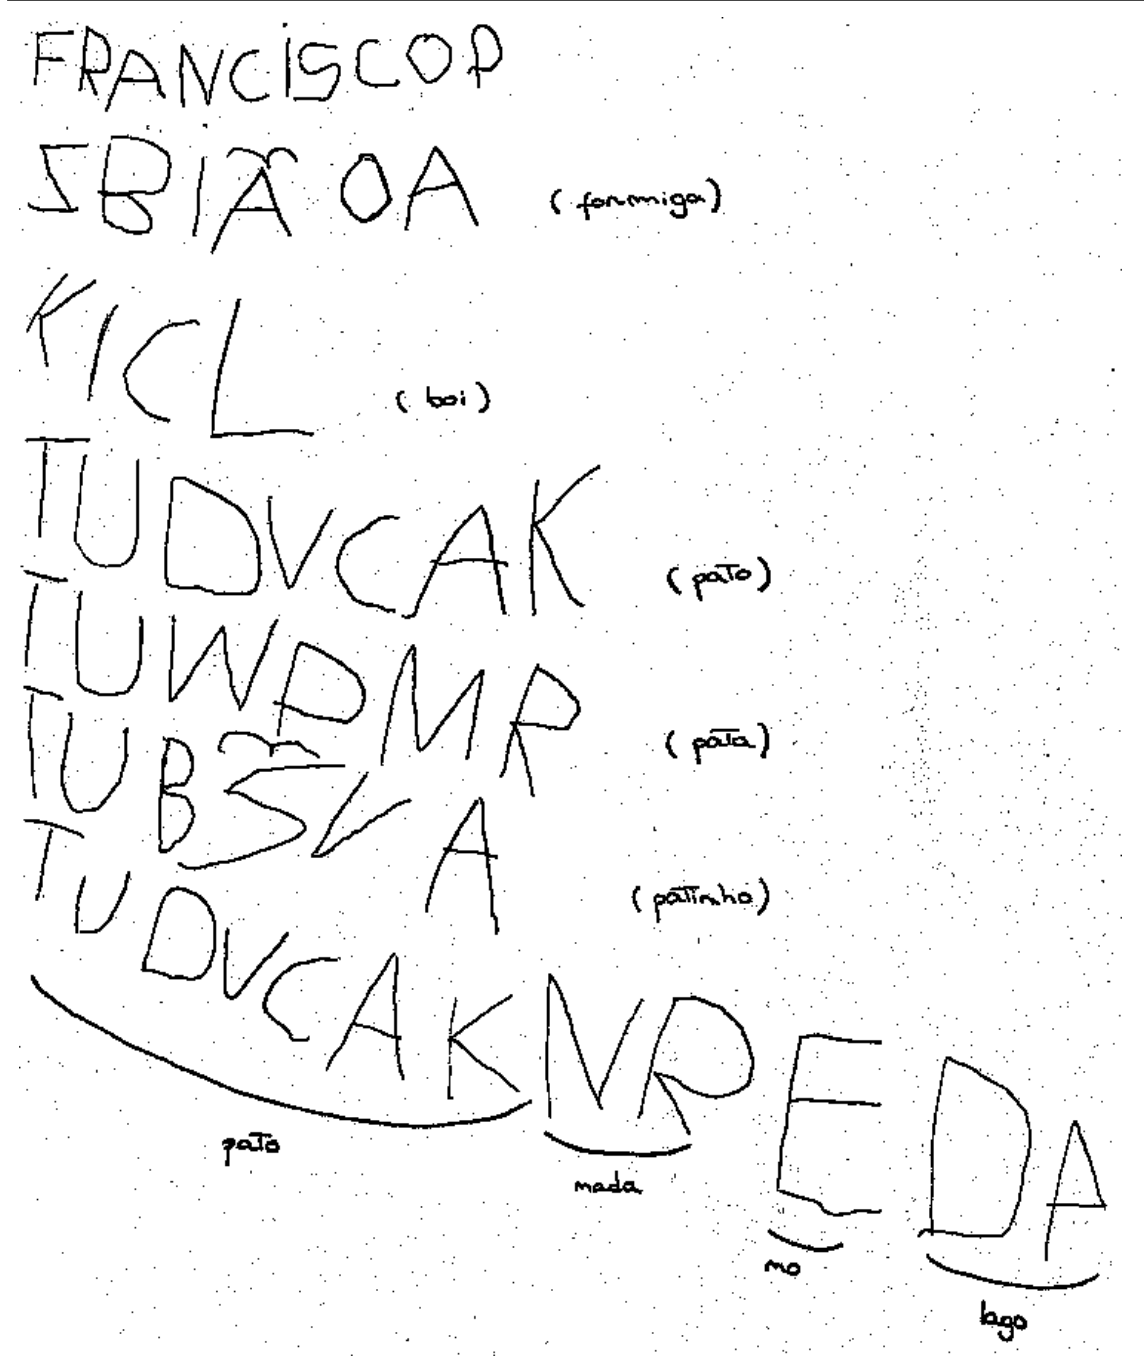 FRANCISCO P
SBIÃOA (formiga)
KICL (boi)
TUDVCAK (pato)
TUWPMR (pata)
TUBSVA (patinho)
TUDVCAKNREDA
pato nada no lago